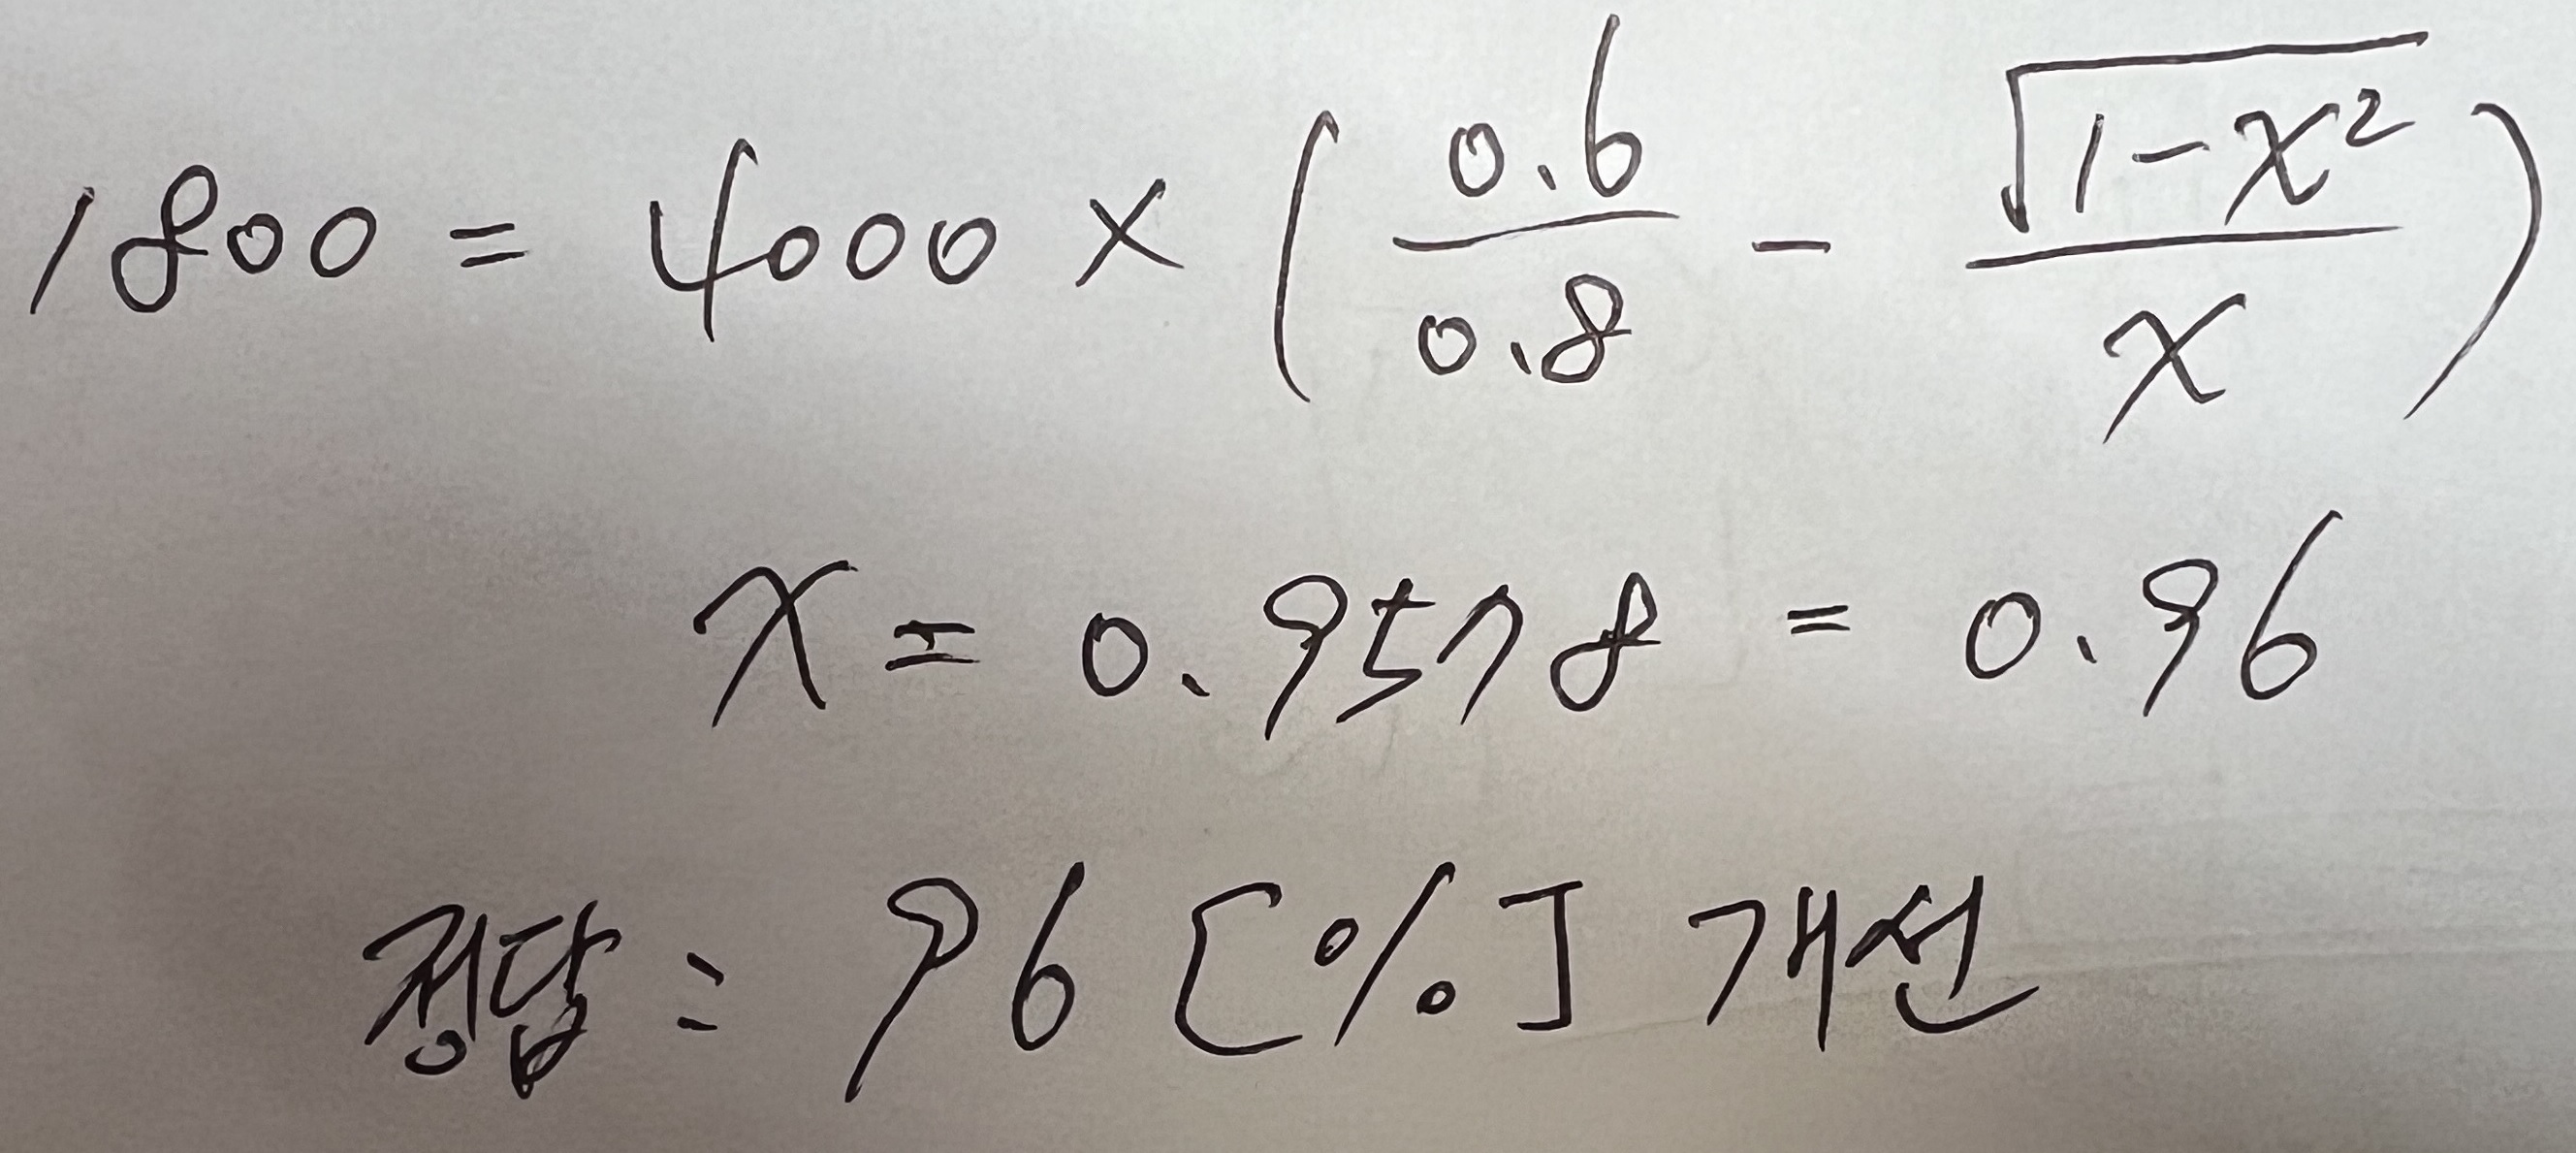 1800 = 4000 × ( 0.6/0.8 - √(1-x²)/x )
x = 0.9578 = 0.96
정답 : 96 [%] 개선